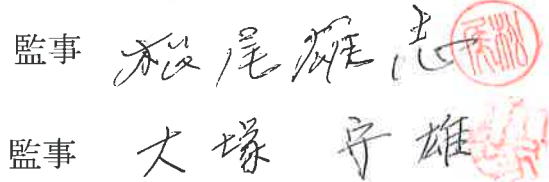 監事 松尾雄志
監事 大塚守雄